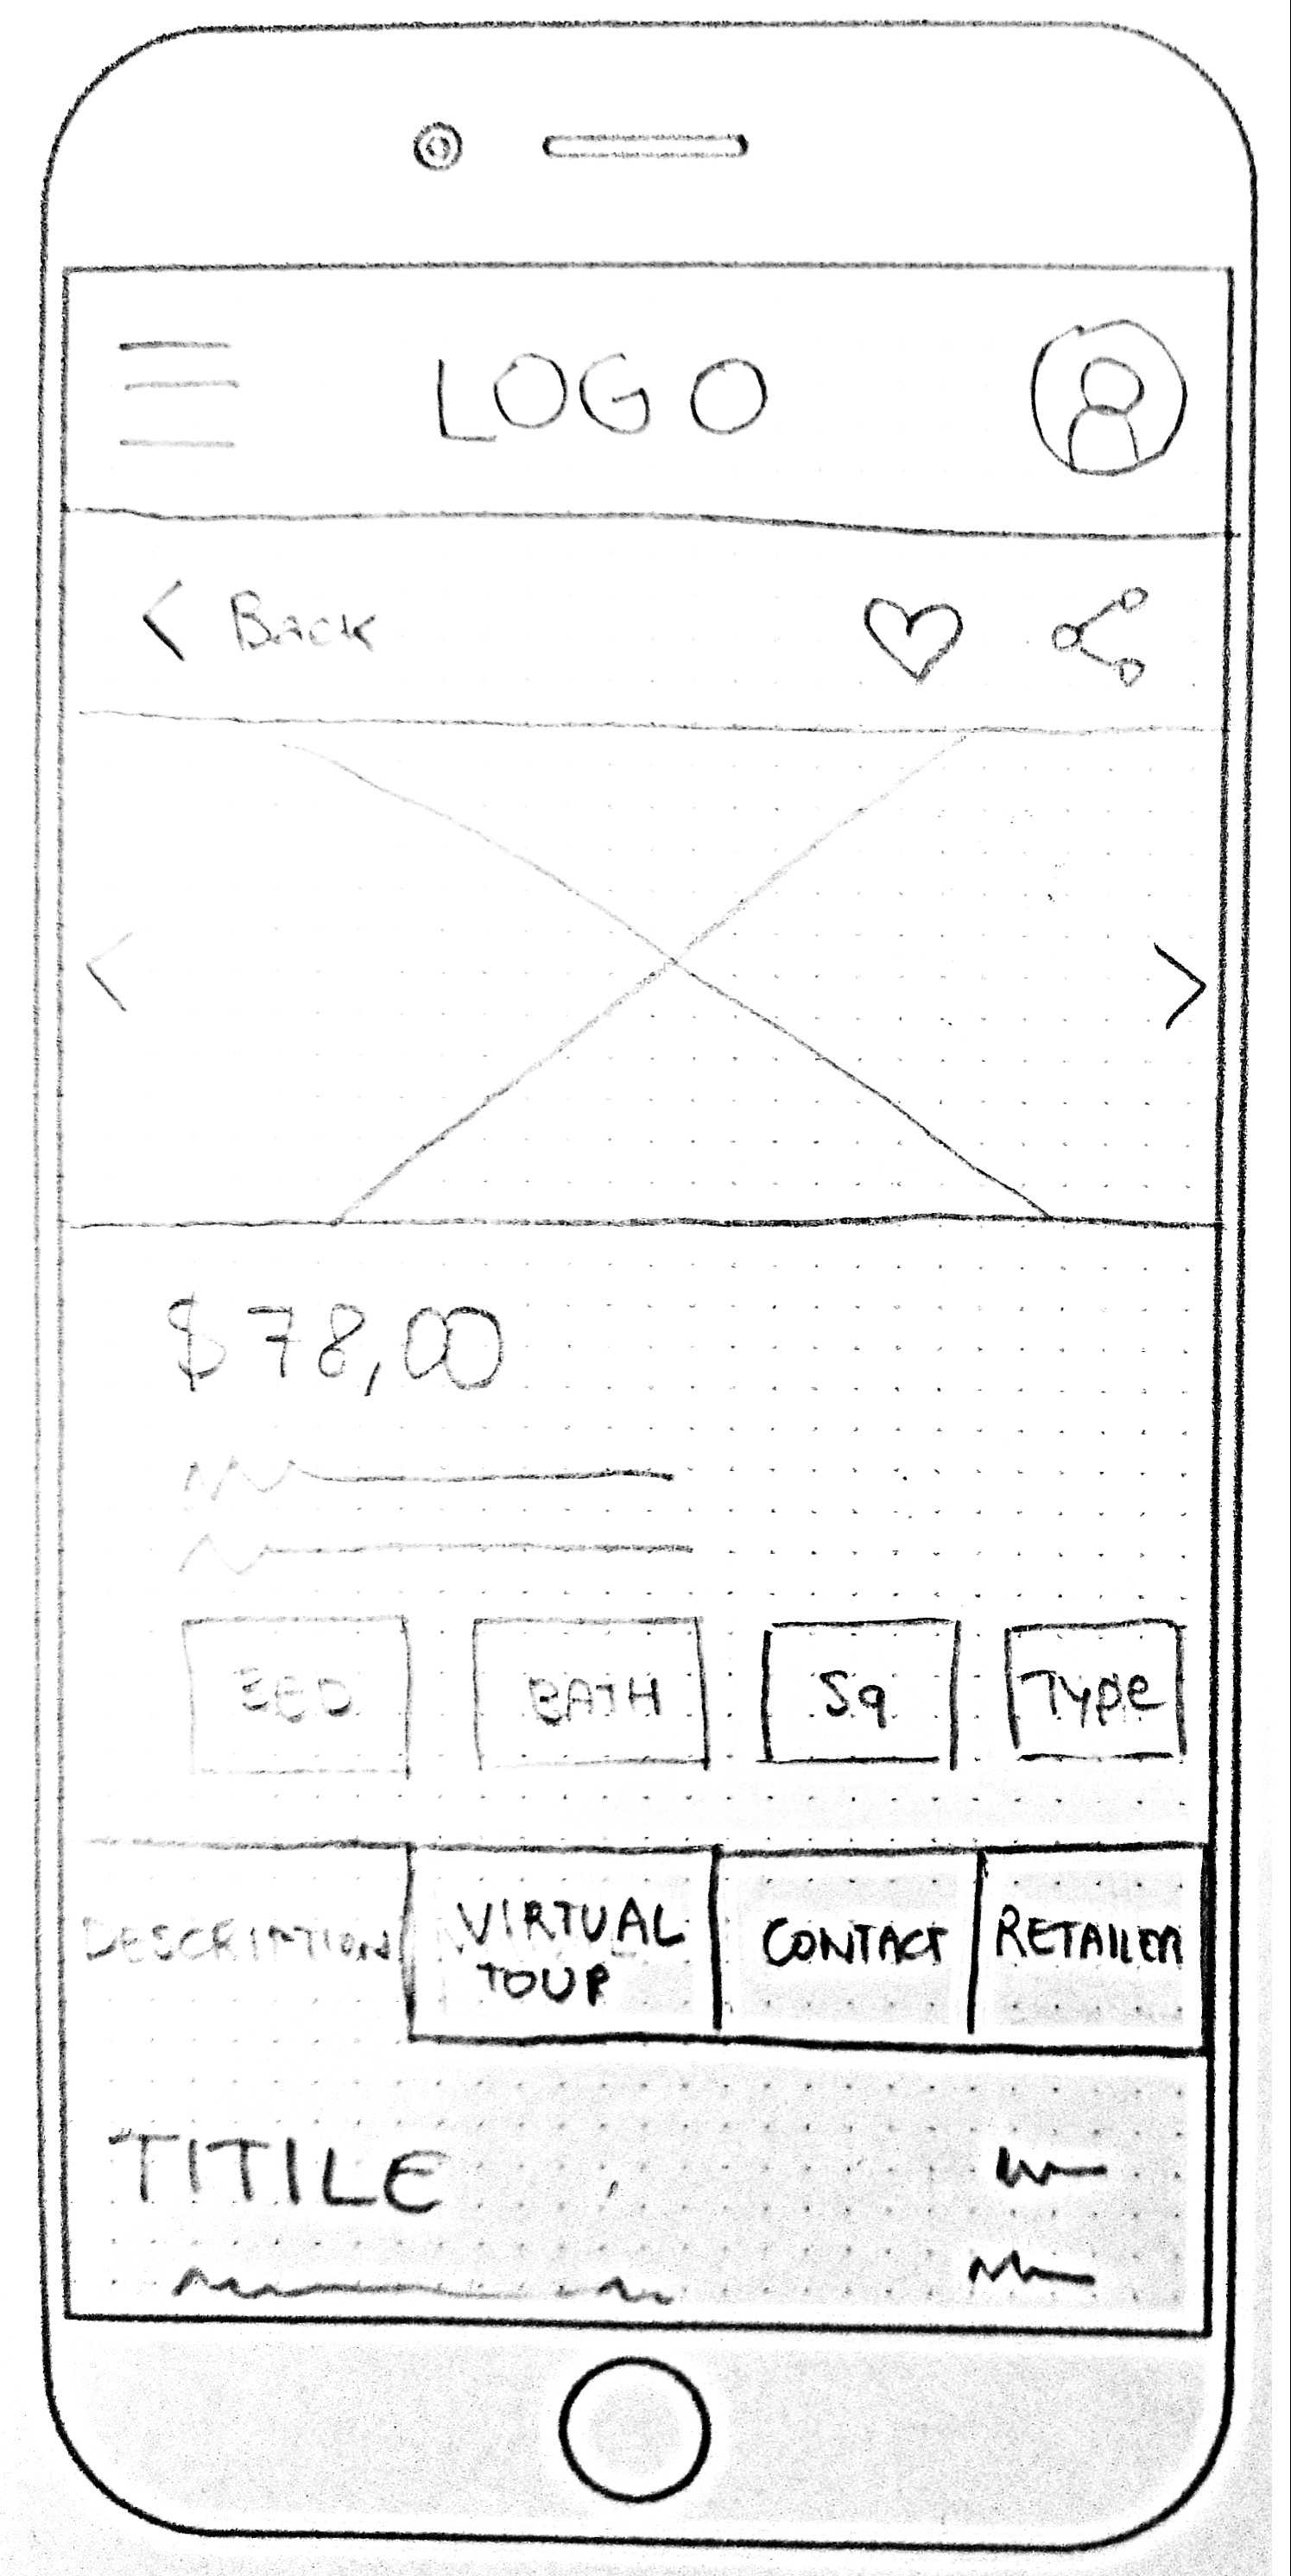 LOGO
< Back
$78,00
BED BATH Sq Type
DESCRIPTION VIRTUAL TOUR CONTACT RETAILER
TITILE